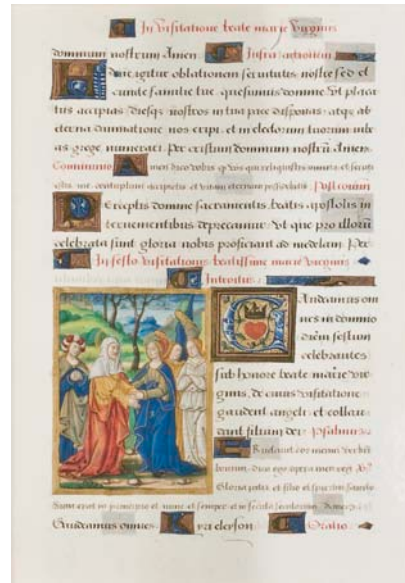 In visitatione beate marie virginis
dominum nostrum Amen Infra actionem
Hanc igitur oblationem servitutis nostre sed et
cuncte familie tue quesumus domine ut placat
tus accipias diesque nostros in tua pace disponas atque ab
eterna damnatione nos eripi et in electorum tuorum iube
as grege numerari Per cristum dominum nostrum Amen
Communio Amen dico vobis quod vos qui reliquistis omnia et secuti
estis me centuplum accipietis et vitam eternam possidebitis Postcomm
Perceptis domine sacramentis beatis apostolis in
tervenientibus deprecamur ut que pro illorum
celebrata sunt gloria nobis proficiant ad medelam Per
In festo visitationis beatissime marie virginis
Introitus
Gaudeamus om
nes in domino
diem festum
celebrantes
sub honore beate marie vir
ginis de cuius visitatione
gaudent angeli et collau
dant filium dei Psalmus
Eructavit cor meum verbum
bonum dico ego opera mea regi
Gloria patri et filio et spiritui sancto
Sicut erat in principio et nunc et semper et in secula seculorum Amen
Gaudeamus omnes Kyrieleyson Oratio